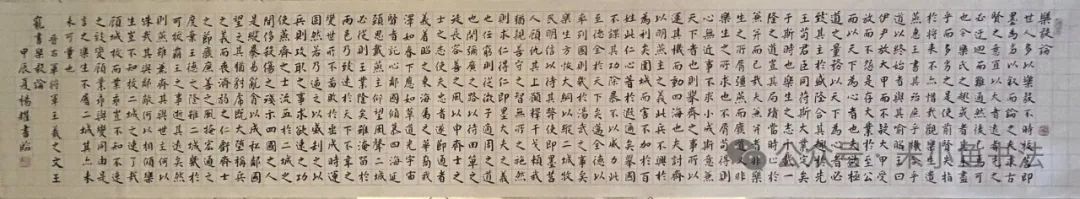 樂毅論
世人多以樂毅不時拔莒即
墨為劣是以敘而論之夫求古
賢之意宜以大者遠者先之
必迂迴而難通然後已焉可
也今樂氏之趣或者其未盡
乎而多劣之是使前賢失指
於將來不亦惜哉觀樂生遺
燕惠王書其殆庶乎機合乎
道以終始者與其喻昭王曰
伊尹放大甲而不疑大甲受
放而不怨是存大業於至公
而以天下為心者也夫欲極
道之量務以天下為心者必
致其主於盛隆合其趣於先
王苟君臣同符斯大業定矣
于斯時也樂生之志千載一
遇也亦將行千載一隆之道
豈其局蹟當時止於兼
并而已哉夫兼并者非樂
生之所屑彊燕而廢道又非
樂生之所求也不屑苟得則
心無近事不求小成斯意兼
天下者也則舉齊之事所以
運其機而動四海也夫討齊
以明燕主之義此兵不興於
為利矣圍城而害不加於百
姓此仁心著於遐邇矣舉國
不謀其功除暴不以威力此
至德令於天下矣邁全德以
率列國則幾於湯武之事矣
樂生方恢大綱以縱二城牧
民明信以待其弊使即墨莒
人顧仇其上願釋干戈賴我
猶親善守之智無所之施然
則求仁得仁即墨大夫之義
也任窮則從微子適周之道
也開彌廣之路以待田單之
徒長容善之風以申齊士之
志使夫忠者遂節通者
義著昭之東海屬之華裔我
澤如春下應如草道光宇宙
賢者託心鄰國傾慕四海延
頸思戴燕主仰望風聲二城
必從則王業隆矣雖淹留於
兩邑乃致速於天下不幸之
變世所不圖敗於垂成時運
固然若乃逼之以威劫之以
兵則攻取之事求欲速之功
使燕齊之士流血於二城之
間侈殺傷之殘示四國之人
是縱暴易亂貪以成私鄰國
望之其猶豺虎既大墮稱兵
之義而喪濟弱之仁虧齊士
之節廢廉善之風掩宏通之
度棄王德之隆雖二城幾於
可拔霸王之事逝其遠矣然
則燕雖兼齊其與世主何以
殊哉其與鄰敵何以相傾樂
生豈不知拔二城之速了哉
顧城拔而業乖豈不知不速
之致變顧業乖與變同由是
言之樂生不屑二城其亦未
可量也
晉右軍將軍王羲之文王
寵書樂毅論
甲辰夏楊耀書臨